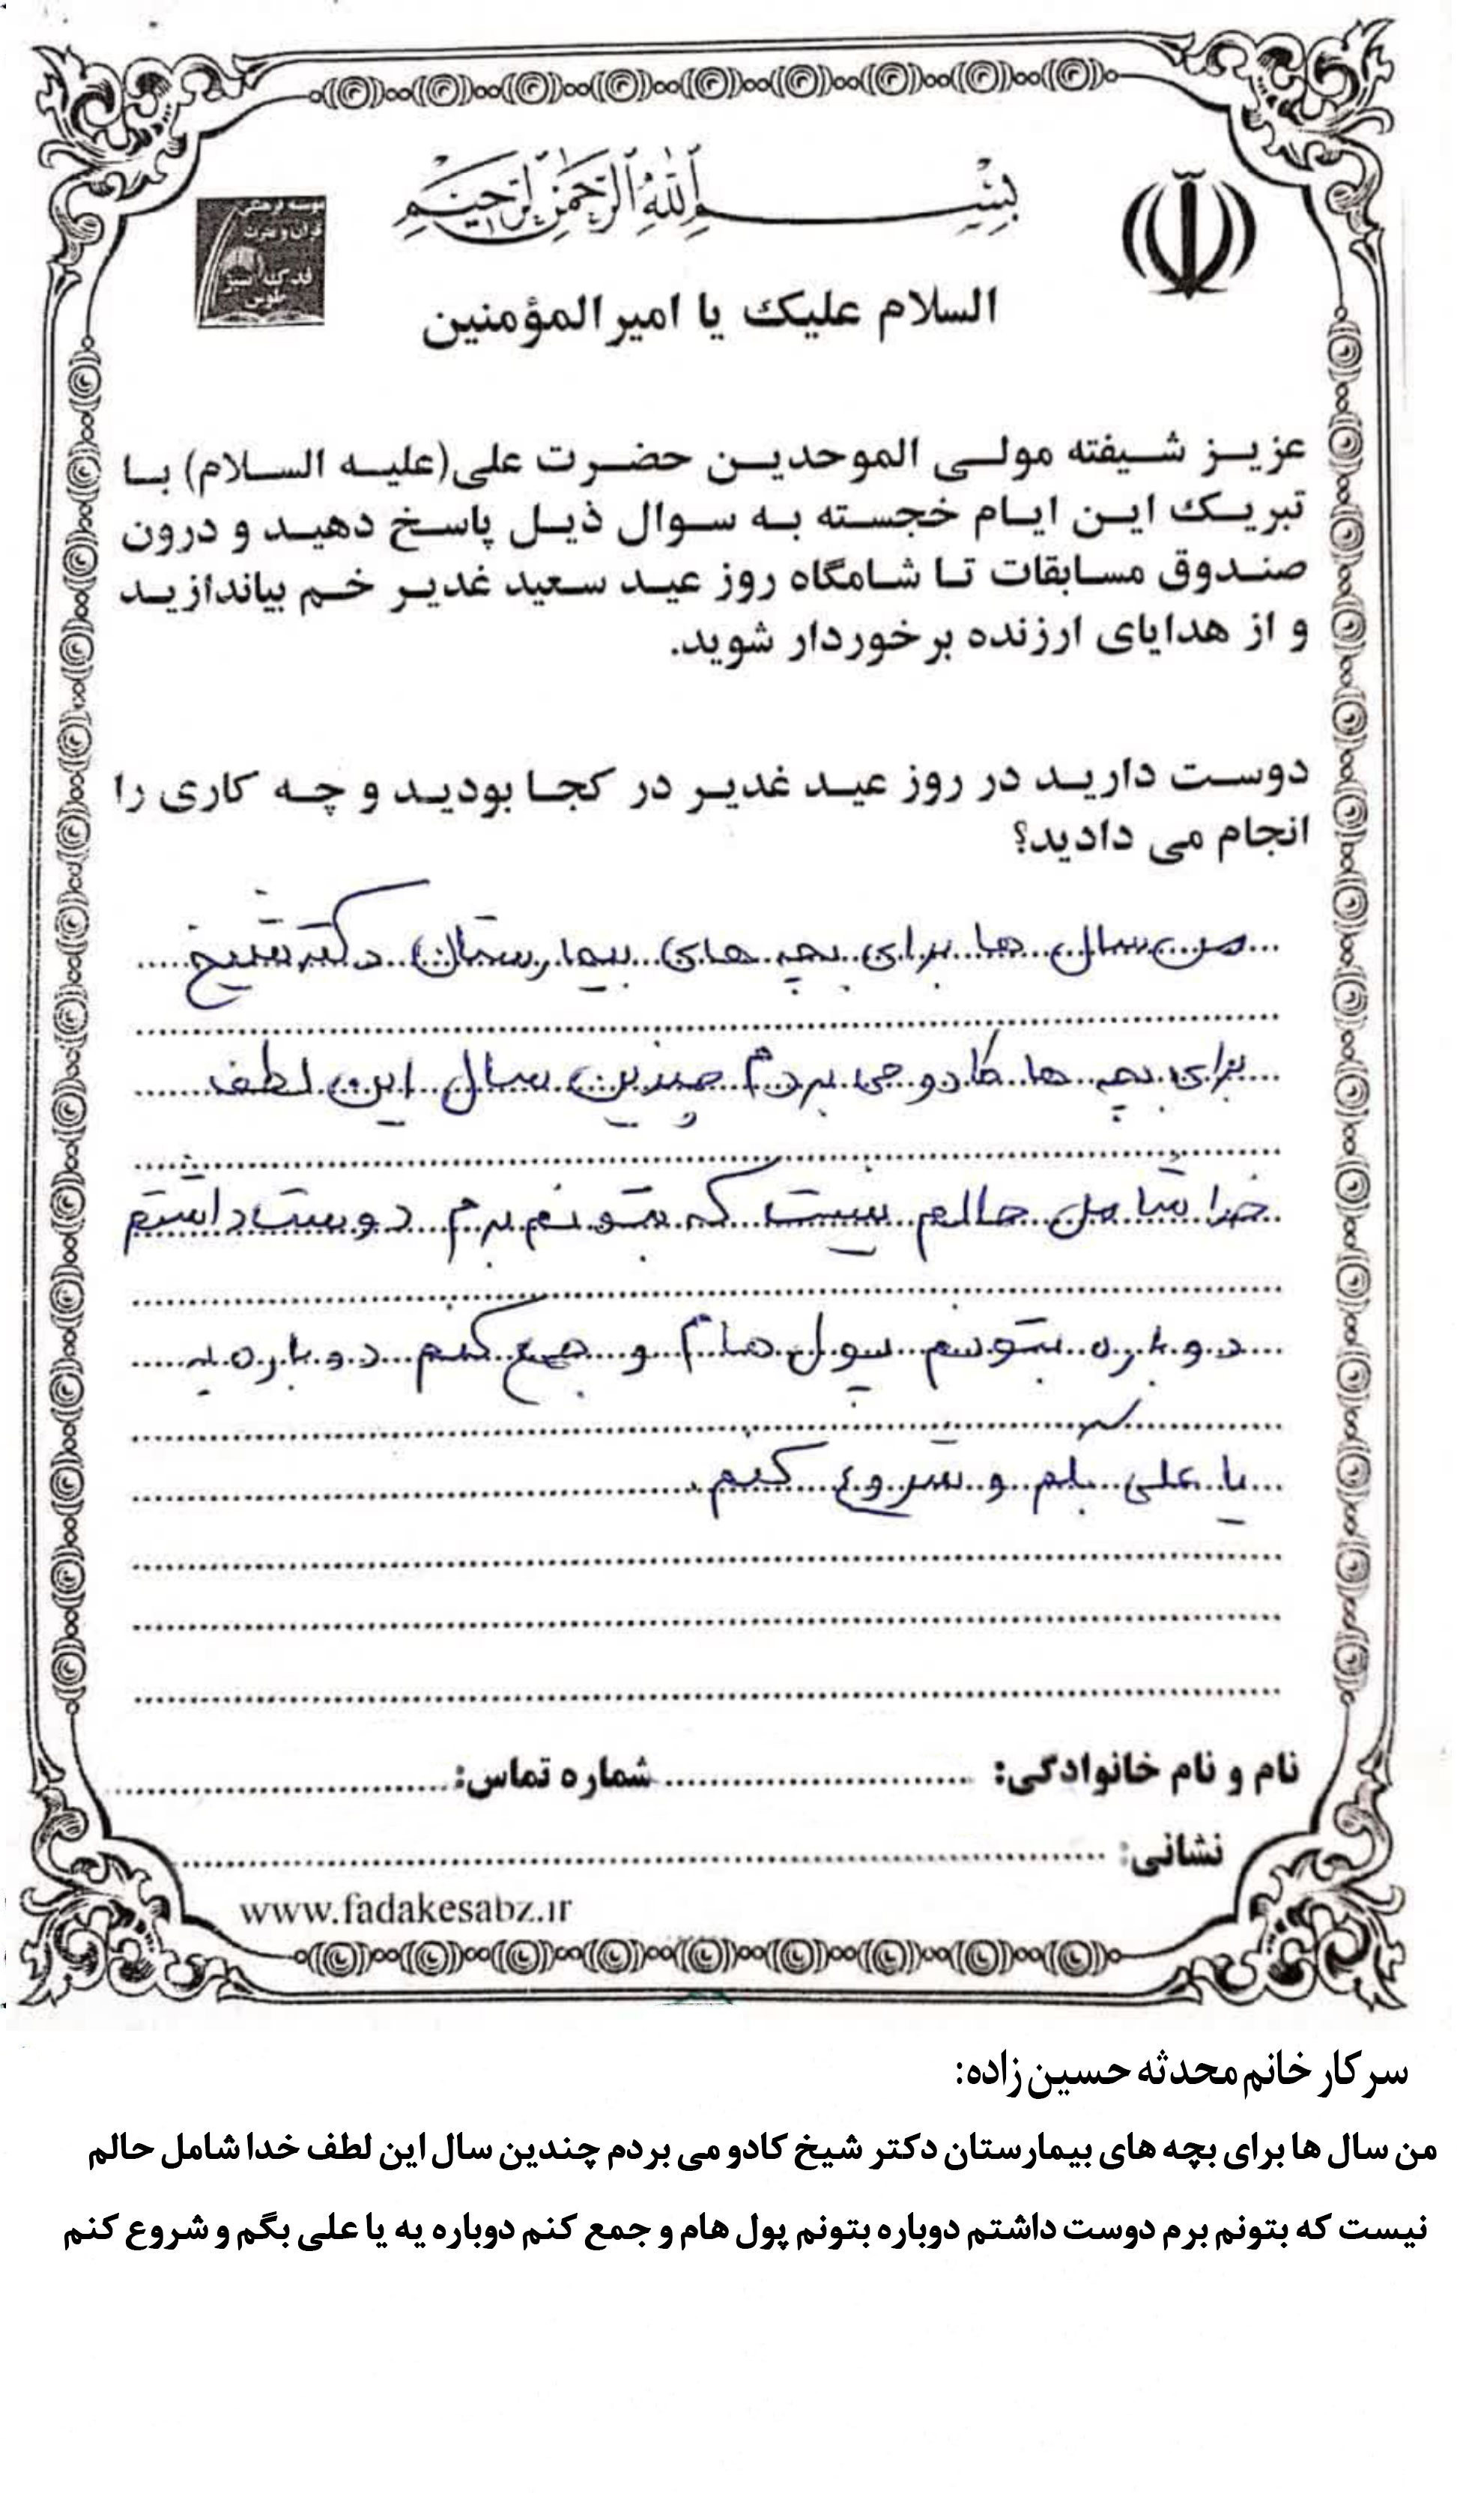 بسم الله الرحمن الرحیم
موسسه فرهنگی
قرآن و عترت
فدک سبز
طوس
السلام علیک یا امیر المؤمنین
عزیز شیفته مولی الموحدین حضرت علی(علیه السلام) با
تبریک این ایام خجسته به سوال ذیل پاسخ دهید و درون
صندوق مسابقات تا شامگاه روز عید سعید غدیر خم بیاندازید
و از هدایای ارزنده برخوردار شوید.
دوست دارید در روز عید غدیر در کجا بودید و چه کاری را
انجام می دادید؟
من سال ها برای بچه های بیمارستان دکتر شیخ
برای بچه ها کادو می بردم چندین سال این لطف
خدا شامل حالم نیست که بتونم برم دوست داشتم
دوباره بتونم پول هام و جمع کنم دوباره یه
یا علی بگم و شروع کنم.
نام و نام خانوادگی: شماره تماس:
نشانی:
www.fadakesabz.ir
سرکار خانم محدثه حسین زاده:
من سال ها برای بچه های بیمارستان دکتر شیخ کادو می بردم چندین سال این لطف خدا شامل حالم
نیست که بتونم برم دوست داشتم دوباره بتونم پول هام و جمع کنم دوباره یه یا علی بگم و شروع کنم